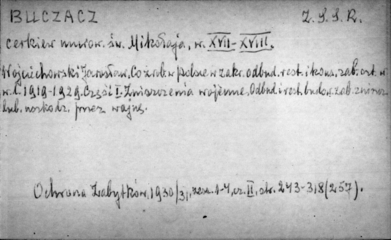 BUCZACZ Z.S.S.R.
cerkiew murow. św. Mikołaja, w. XVII-XVIII.
Wojciechowski Jarosław, Co zrob. w Polsce w zakr. odbud. rest. i kons. zab. art. w
w l. 1919-1929. Część I. Zniszczenia wojenne. Odbud. i rest. budow. zab. zniszcz.
lub uszkodz. przez wojnę.
Ochrona Zabytków, 1930/31, zesz. 1-4, cz. II, str. 243-318 (257).